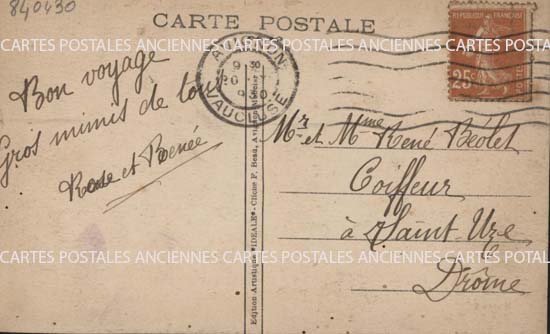 840430
CARTE POSTALE
RÉPUBLIQUE FRANÇAISE
25c
POSTES
AVIGNON
9 30
VAUCLUSE
Bon voyage
Gros mimis de tous
Rose et Renée
Mr et Mme René Béolet
Coiffeur
à Saint Uze
Drôme
Edition Artistique "IDEALE" - Cliché F. Beau, Avignon
CARTES POSTALES ANCIENNES CARTES POSTALES ANCIENNES CARTES POSTALES ANCIENNES
CARTES POSTALES ANCIENNES CARTES POSTALES ANCIENNES CARTES POSTALES ANCIENNES